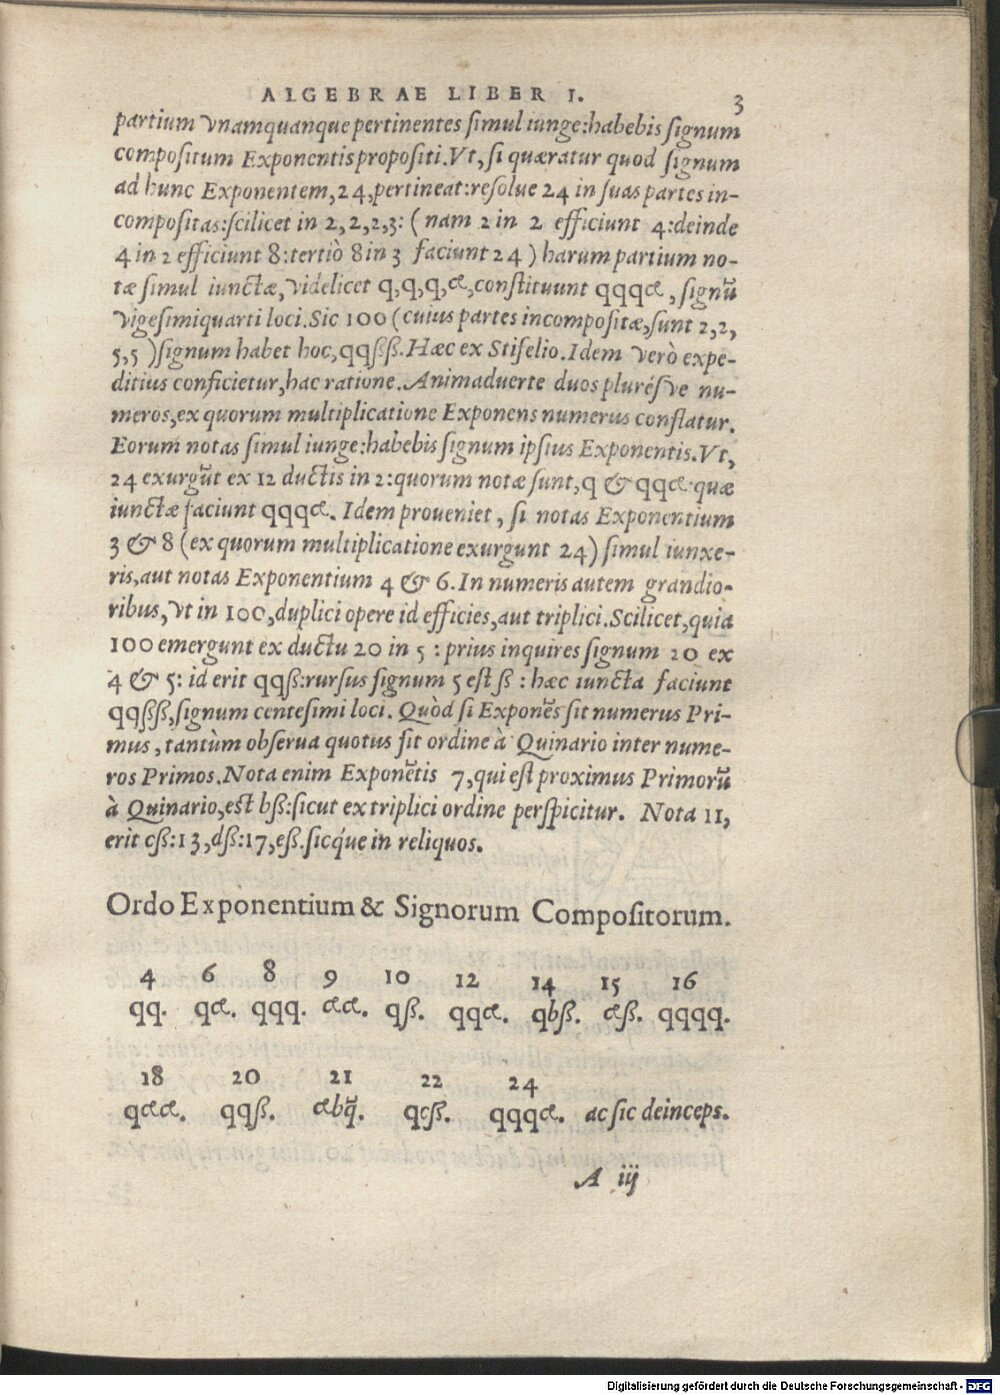 ALGEBRAE LIBER I.
3
partium vnamquanque pertinentes simul iunge: habebis signum
compositum Exponentis propositi. Vt, si quæratur quod signum
ad hunc Exponentem, 24, pertineat: resolue 24 in suas partes in-
compositas: scilicet in 2, 2, 2, 3: ( nam 2 in 2 efficiunt 4: deinde
4 in 2 efficiunt 8: tertiò 8 in 3 faciunt 24 ) harum partium no-
tæ simul iunctæ, videlicet q, q, q, ce, constituunt qqqce, signũ
vigesimiquarti loci. Sic 100 ( cuius partes incompositæ, sunt 2, 2,
5, 5 ) signum habet hoc, qqßß. Hæc ex Stifelio. Idem verò expe-
ditius conficietur, hac ratione. Animaduerte duos plurésve nu-
meros, ex quorum multiplicatione Exponens numerus conflatur.
Eorum notas simul iunge: habebis signum ipsius Exponentis. Vt,
24 exurgũt ex 12 ductis in 2: quorum notæ sunt, q & qqce quæ
iunctæ faciunt qqqce. Idem proueniet, si notas Exponentium
3 & 8 ( ex quorum multiplicatione exurgunt 24 ) simul iunxe-
ris, aut notas Exponentium 4 & 6. In numeris autem grandio-
ribus, vt in 100, duplici opere id efficies, aut triplici. Scilicet, quia
100 emergunt ex ductu 20 in 5 : prius inquires signum 20 ex
4 & 5: id erit qqß: rursus signum 5 est ß : hæc iuncta faciunt
qqßß, signum centesimi loci. Quòd si Exponẽs sit numerus Pri-
mus, tantùm obserua quotus sit ordine à Quinario inter nume-
ros Primos. Nota enim Exponẽtis 7, qui est proximus Primorũ
à Quinario, est bß: sicut ex triplici ordine perspicitur. Nota 11,
erit cß: 13, dß: 17, eß. sicq́ue in reliquos.
Ordo Exponentium & Signorum Compositorum.
4 6 8 9 10 12 14 15 16
qq. qce. qqq. cece. qß. qqce. qbß. ceß. qqqq.
18 20 21 22 24
qcece. qqß. cebq̃. qcß. qqqce. ac sic deinceps.
A iij
Digitalisierung gefördert durch die Deutsche Forschungsgemeinschaft - DFG